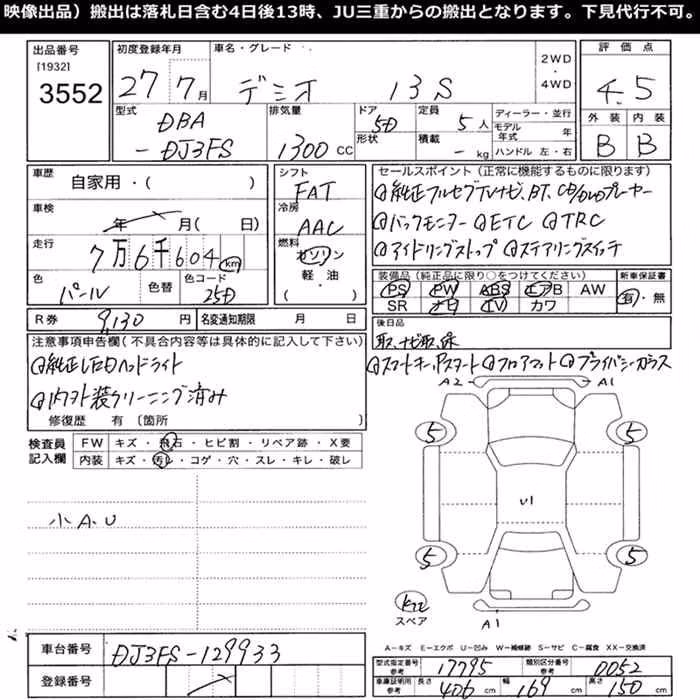 映像出品）搬出は落札日含む4日後13時、JU三重からの搬出となります。下見代行不可。
出品番号
[1932]
3552
初度登録年月
27 7月
車名・グレード
デミオ 13S
2WD
・
4WD
評価点
4.5
外装 内装
B B
型式
DBA
-DJ3FS
排気量
1300 CC
ドア
5D
形状
定員
5人
積載
- kg
ディーラー・並行
モデル年式 年
ハンドル 左・右
車歴
自家用・( )
車検
年 月( 日)
走行
7万6千604km
色
パール
色替
色コード
25D
シフト
FAT
冷房
AAC
燃料
ガソリン
・
軽・油
( )
セールスポイント（正常に機能するものに限ります）
純正フルセグTVナビ、BT、CD/DVDプレーヤー
バックモニター ETC TRC
アイドリングストップ ステアリングスイッチ
装備品（純正品に限り○をつけてください）
PS PW ABS エアB AW
SR ナビ TV カワ
新車保証書
有・無
R券
9,130 円
名変通知期限 月 日
後日品
取、ナビ取、保
注意事項申告欄(不具合内容等は具体的に記入して下さい)
純正LEDヘッドライト
内外装クリーニング済み
修復歴 有〔箇所 〕
スマートキー、Pスタート フロアマット プライバシーガラス
検査員
記入欄
FW キズ・飛石・ヒビ割・リペア跡・X要
内装 キズ・汚レ・コゲ・穴・スレ・キレ・破レ
小A.U
A2 A1
5 5
U1
5 5
スペア
A1
A－キズ E－エクボ U－凹み W－補修跡 S－サビ C－腐食 XX－交換済
車台番号
DJ3FS-129933
登録番号
型式指定番号
参考
17795
類別区分番号
参考
0052
車庫証明用
参考
長さ
406 cm
幅
169 cm
高さ
150 cm